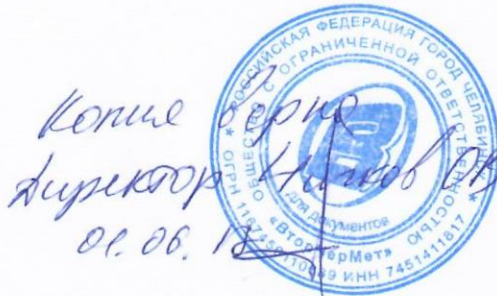 Копия верна
Директор
РОССИЙСКАЯ ФЕДЕРАЦИЯ ГОРОД ЧЕЛЯБИНСК
ОБЩЕСТВО С ОГРАНИЧЕННОЙ ОТВЕТСТВЕННОСТЬЮ
для документов
«ВторЧерМет»
ОГРН
ИНН 7451411817